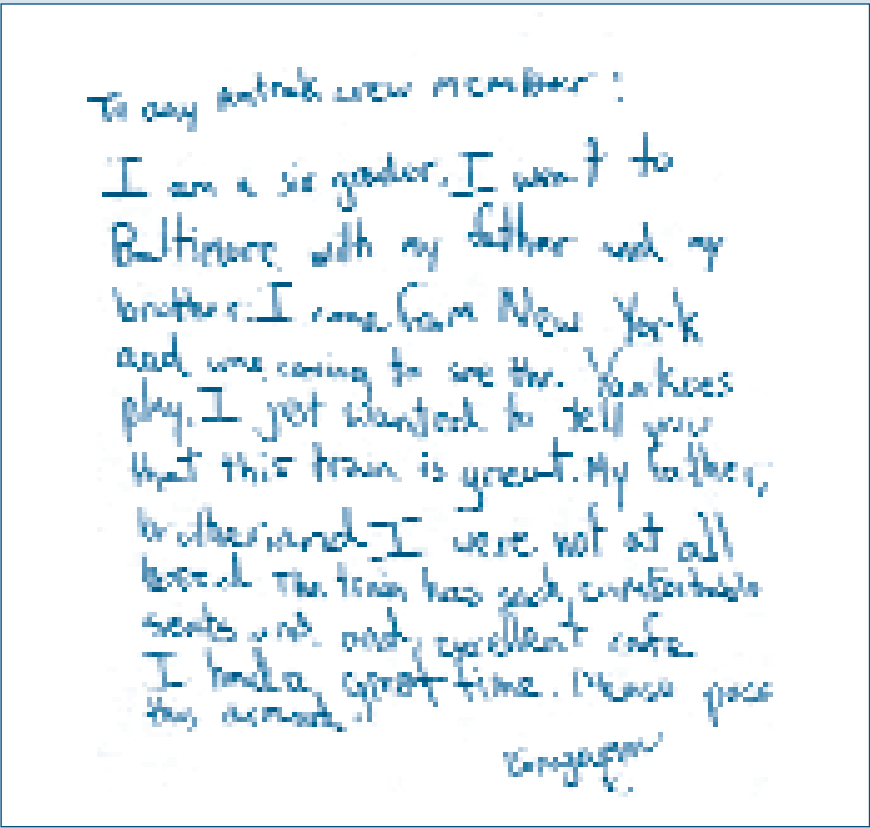 To any Amtrak crew member:
I am a six grader. I went to
Baltimore with my father and my
brother. I come from New York
and were coming to see the Yankees
play. I just wanted to tell you
that this train is great. My father,
brother and I were not at all
bored. The train has such comfortable
seats and and, excellent cafe
I had a great time. Please pass
this around.